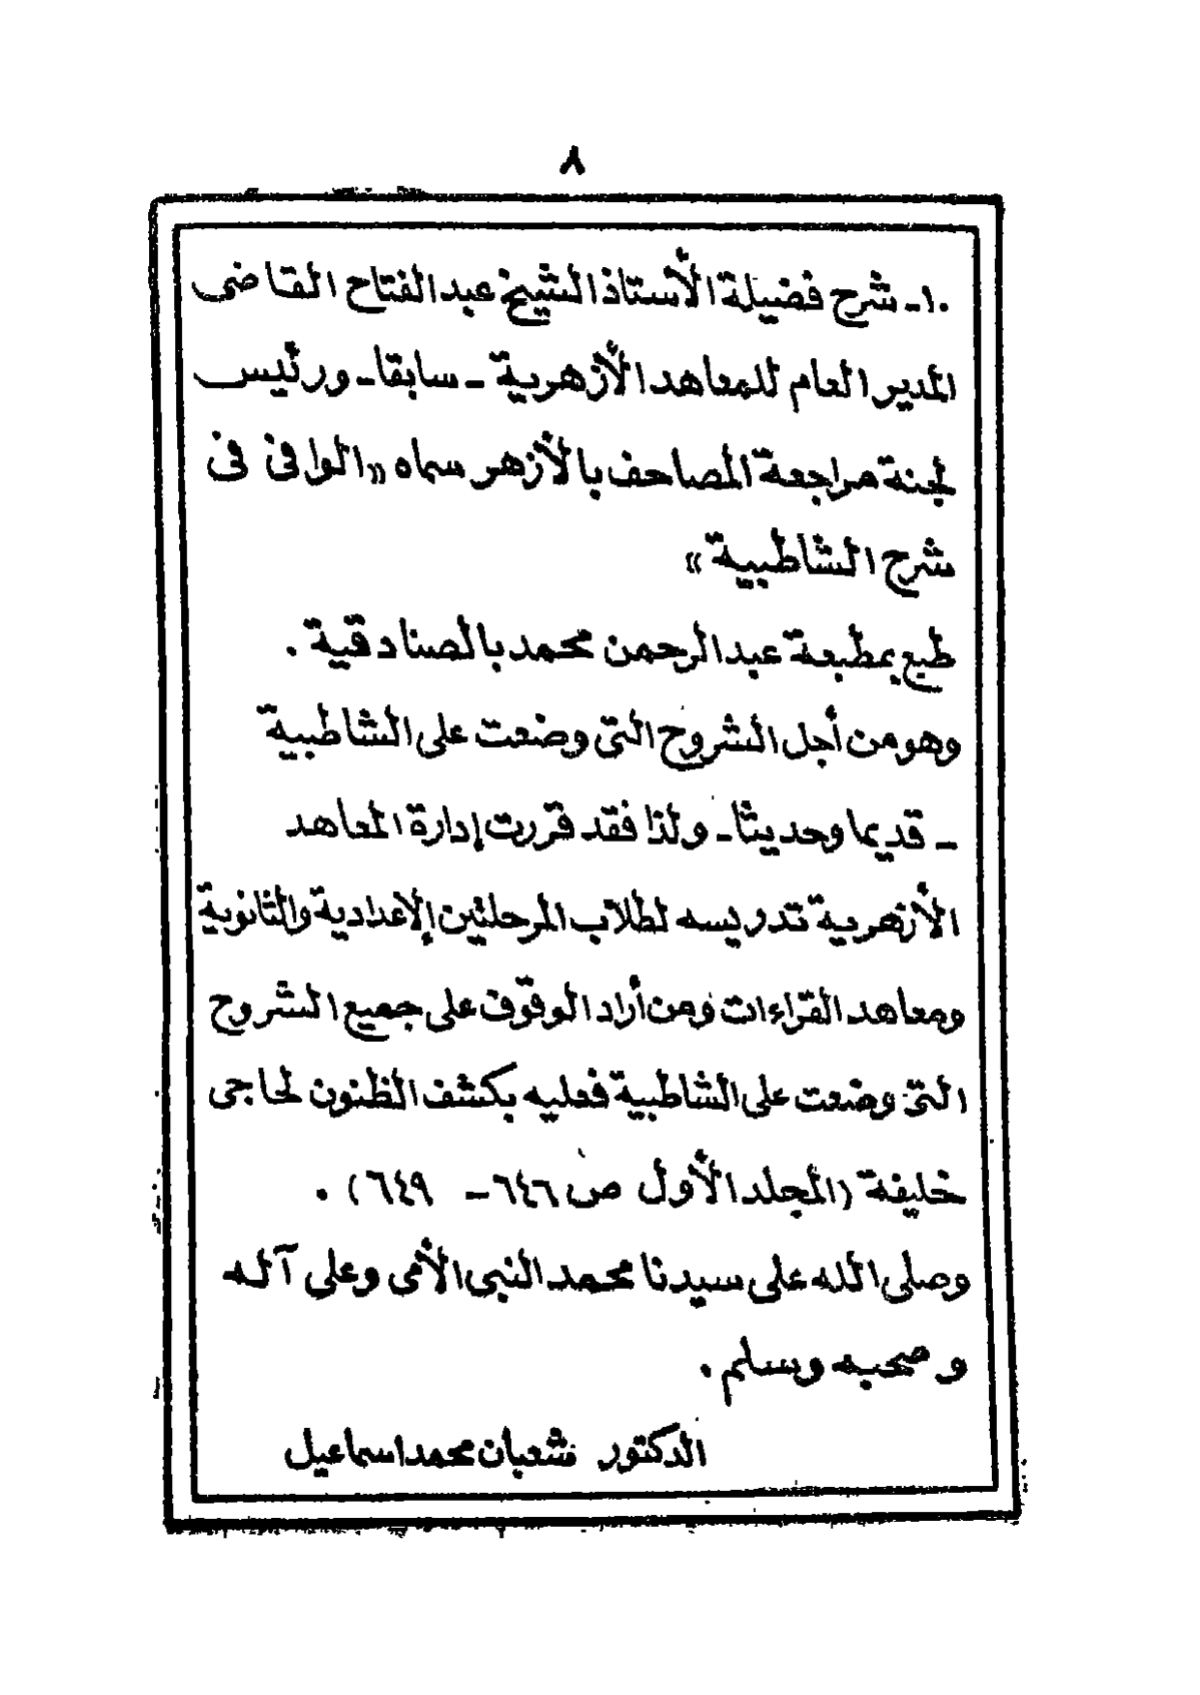 ٨
١٠- شرح فضيلة الأستاذ الشيخ عبد الفتاح القاضى
المدير العام للمعاهد الأزهرية - سابقا - ورئيس
لجنة مراجعة المصاحف بالأزهر سماه «الوافى فى
شرح الشاطبية»
طبع بمطبعة عبد الرحمن محمد بالصنادقية .
وهو من أجل الشروح التى وضعت على الشاطبية
- قديما وحديثا - ولذا فقد قررت إدارة المعاهد
الأزهرية تدريسه لطلاب المرحلتين الإعدادية والثانوية
ومعاهد القراءات ومن أراد الوقوف على جميع الشروح
التى وضعت على الشاطبية فعليه بكشف الظنون لحاجى
خليفة (المجلد الأول ص ٦٤٦ - ٦٤٩) .
وصلى الله على سيدنا محمد النبى الأمى وعلى آله
وصحبه وسلم .
الدكتور شعبان محمد اسماعيل